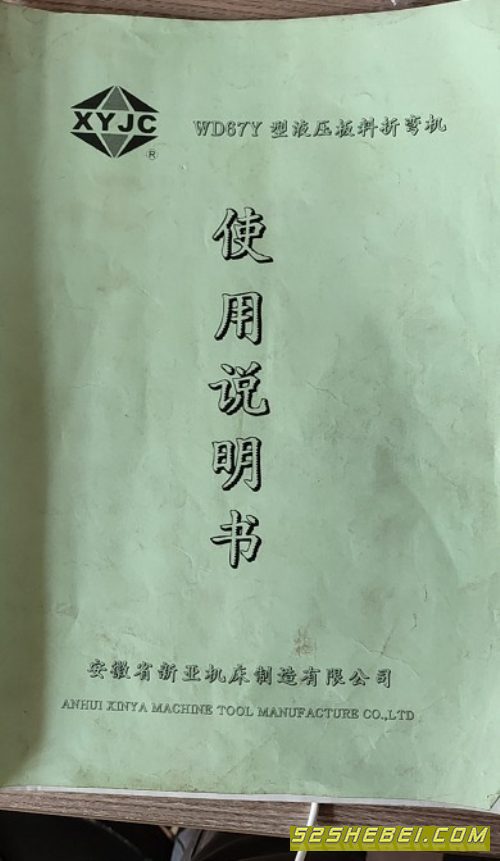 XYJC
®
WD67Y 型液压板料折弯机
使
用
说
明
书
安徽省新亚机床制造有限公司
ANHUI XINYA MACHINE TOOL MANUFACTURE CO.,LTD
52SHEBEI.COM